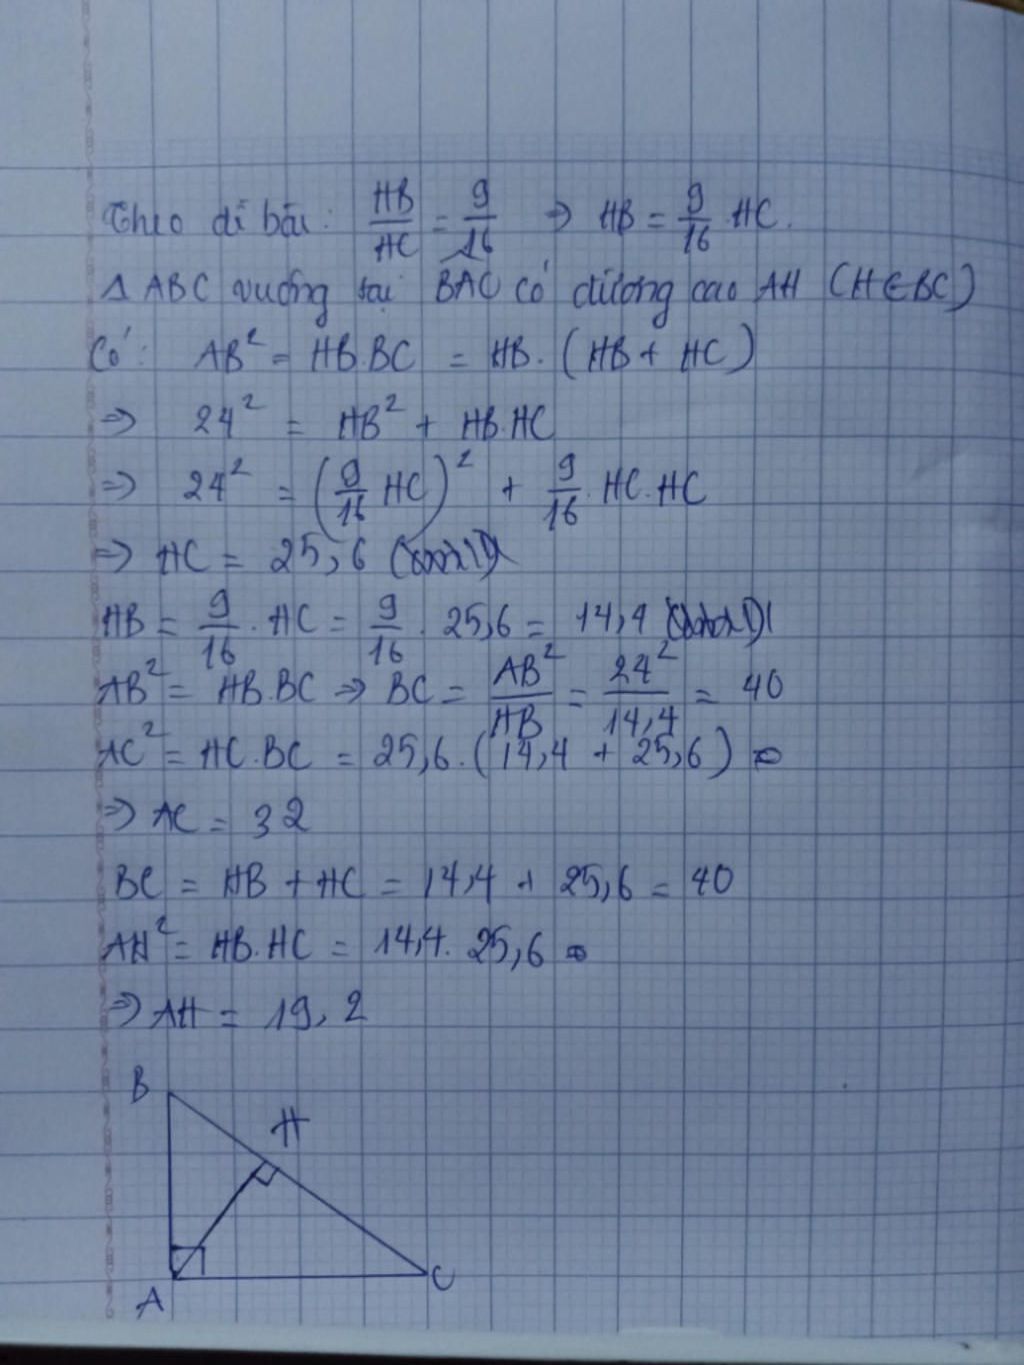 Theo đề bài: HB/HC = 9/16 ⇒ HB = 9/16 HC.
Δ ABC vuông tại BAC có đường cao AH (H ∈ BC)
Có: AB² = HB.BC = HB.(HB + HC)
⇒ 24² = HB² + HB.HC
⇒ 24² = (9/16 HC)² + 9/16.HC.HC
⇒ HC = 25,6
HB = 9/16.HC = 9/16.25,6 = 14,4
AB² = HB.BC ⇒ BC = AB²/HB = 24²/14,4 = 40
AC² = HC.BC = 25,6.(14,4 + 25,6)
⇒ AC = 32
BC = HB + HC = 14,4 + 25,6 = 40
AH² = HB.HC = 14,4.25,6
⇒ AH = 19,2
B
H
A
C